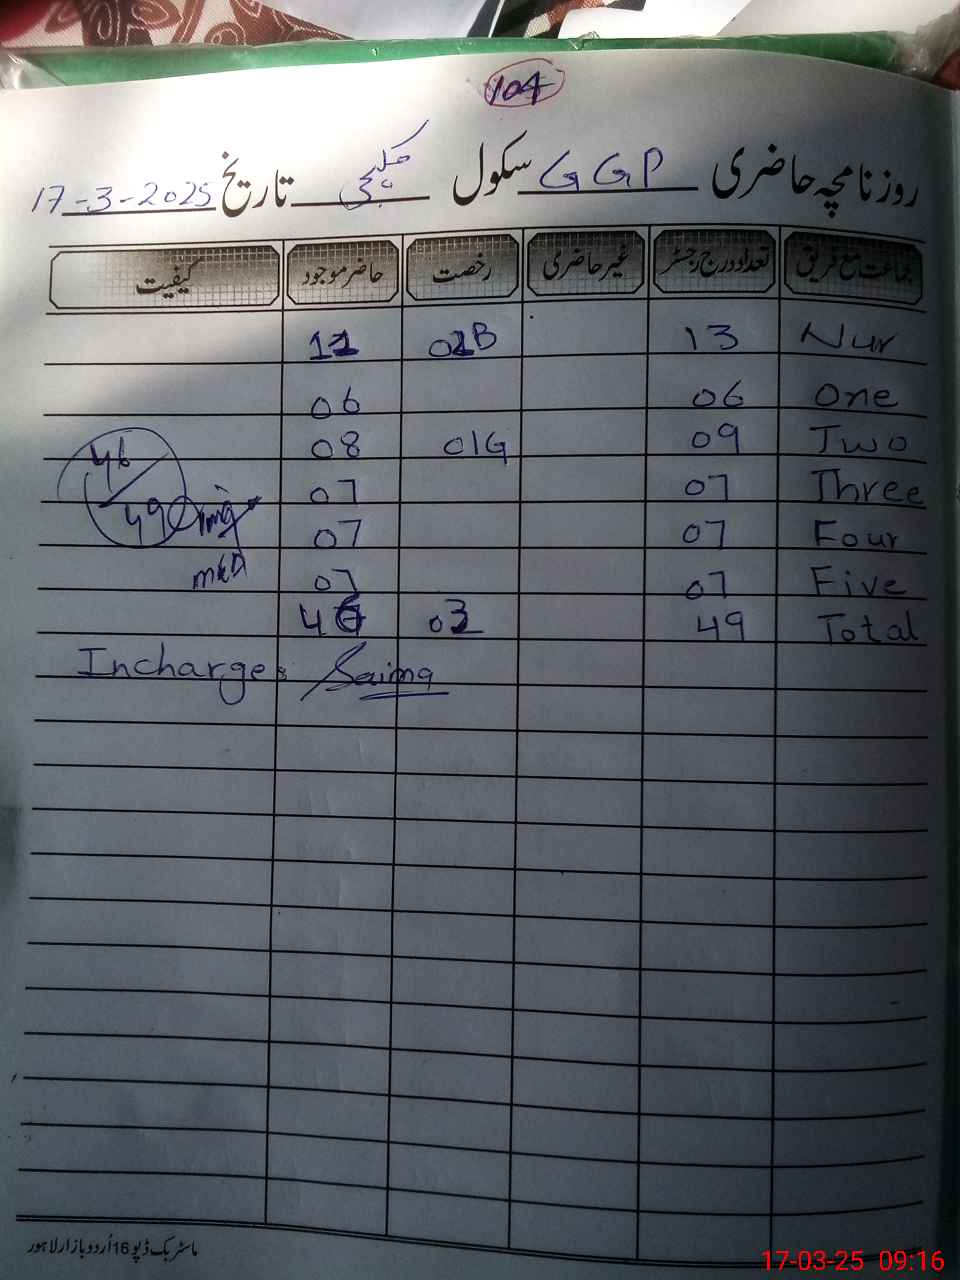 104
روزنامچہ حاضری GGP سکول تاریخ 17-3-2025
جماعت مع فریق تعداد درج رجسٹر غیر حاضری رخصت حاضر موجود کیفیت
Nur 13 B 11
One 06 06
Two 09 01G 08
Three 07 07
Four 07 07
Five 07 07
Total 49 03 46
46/49
Incharge: Saima
ماسٹر بک ڈپو 16 اُردو بازار لاہور
17-03-25 09:16